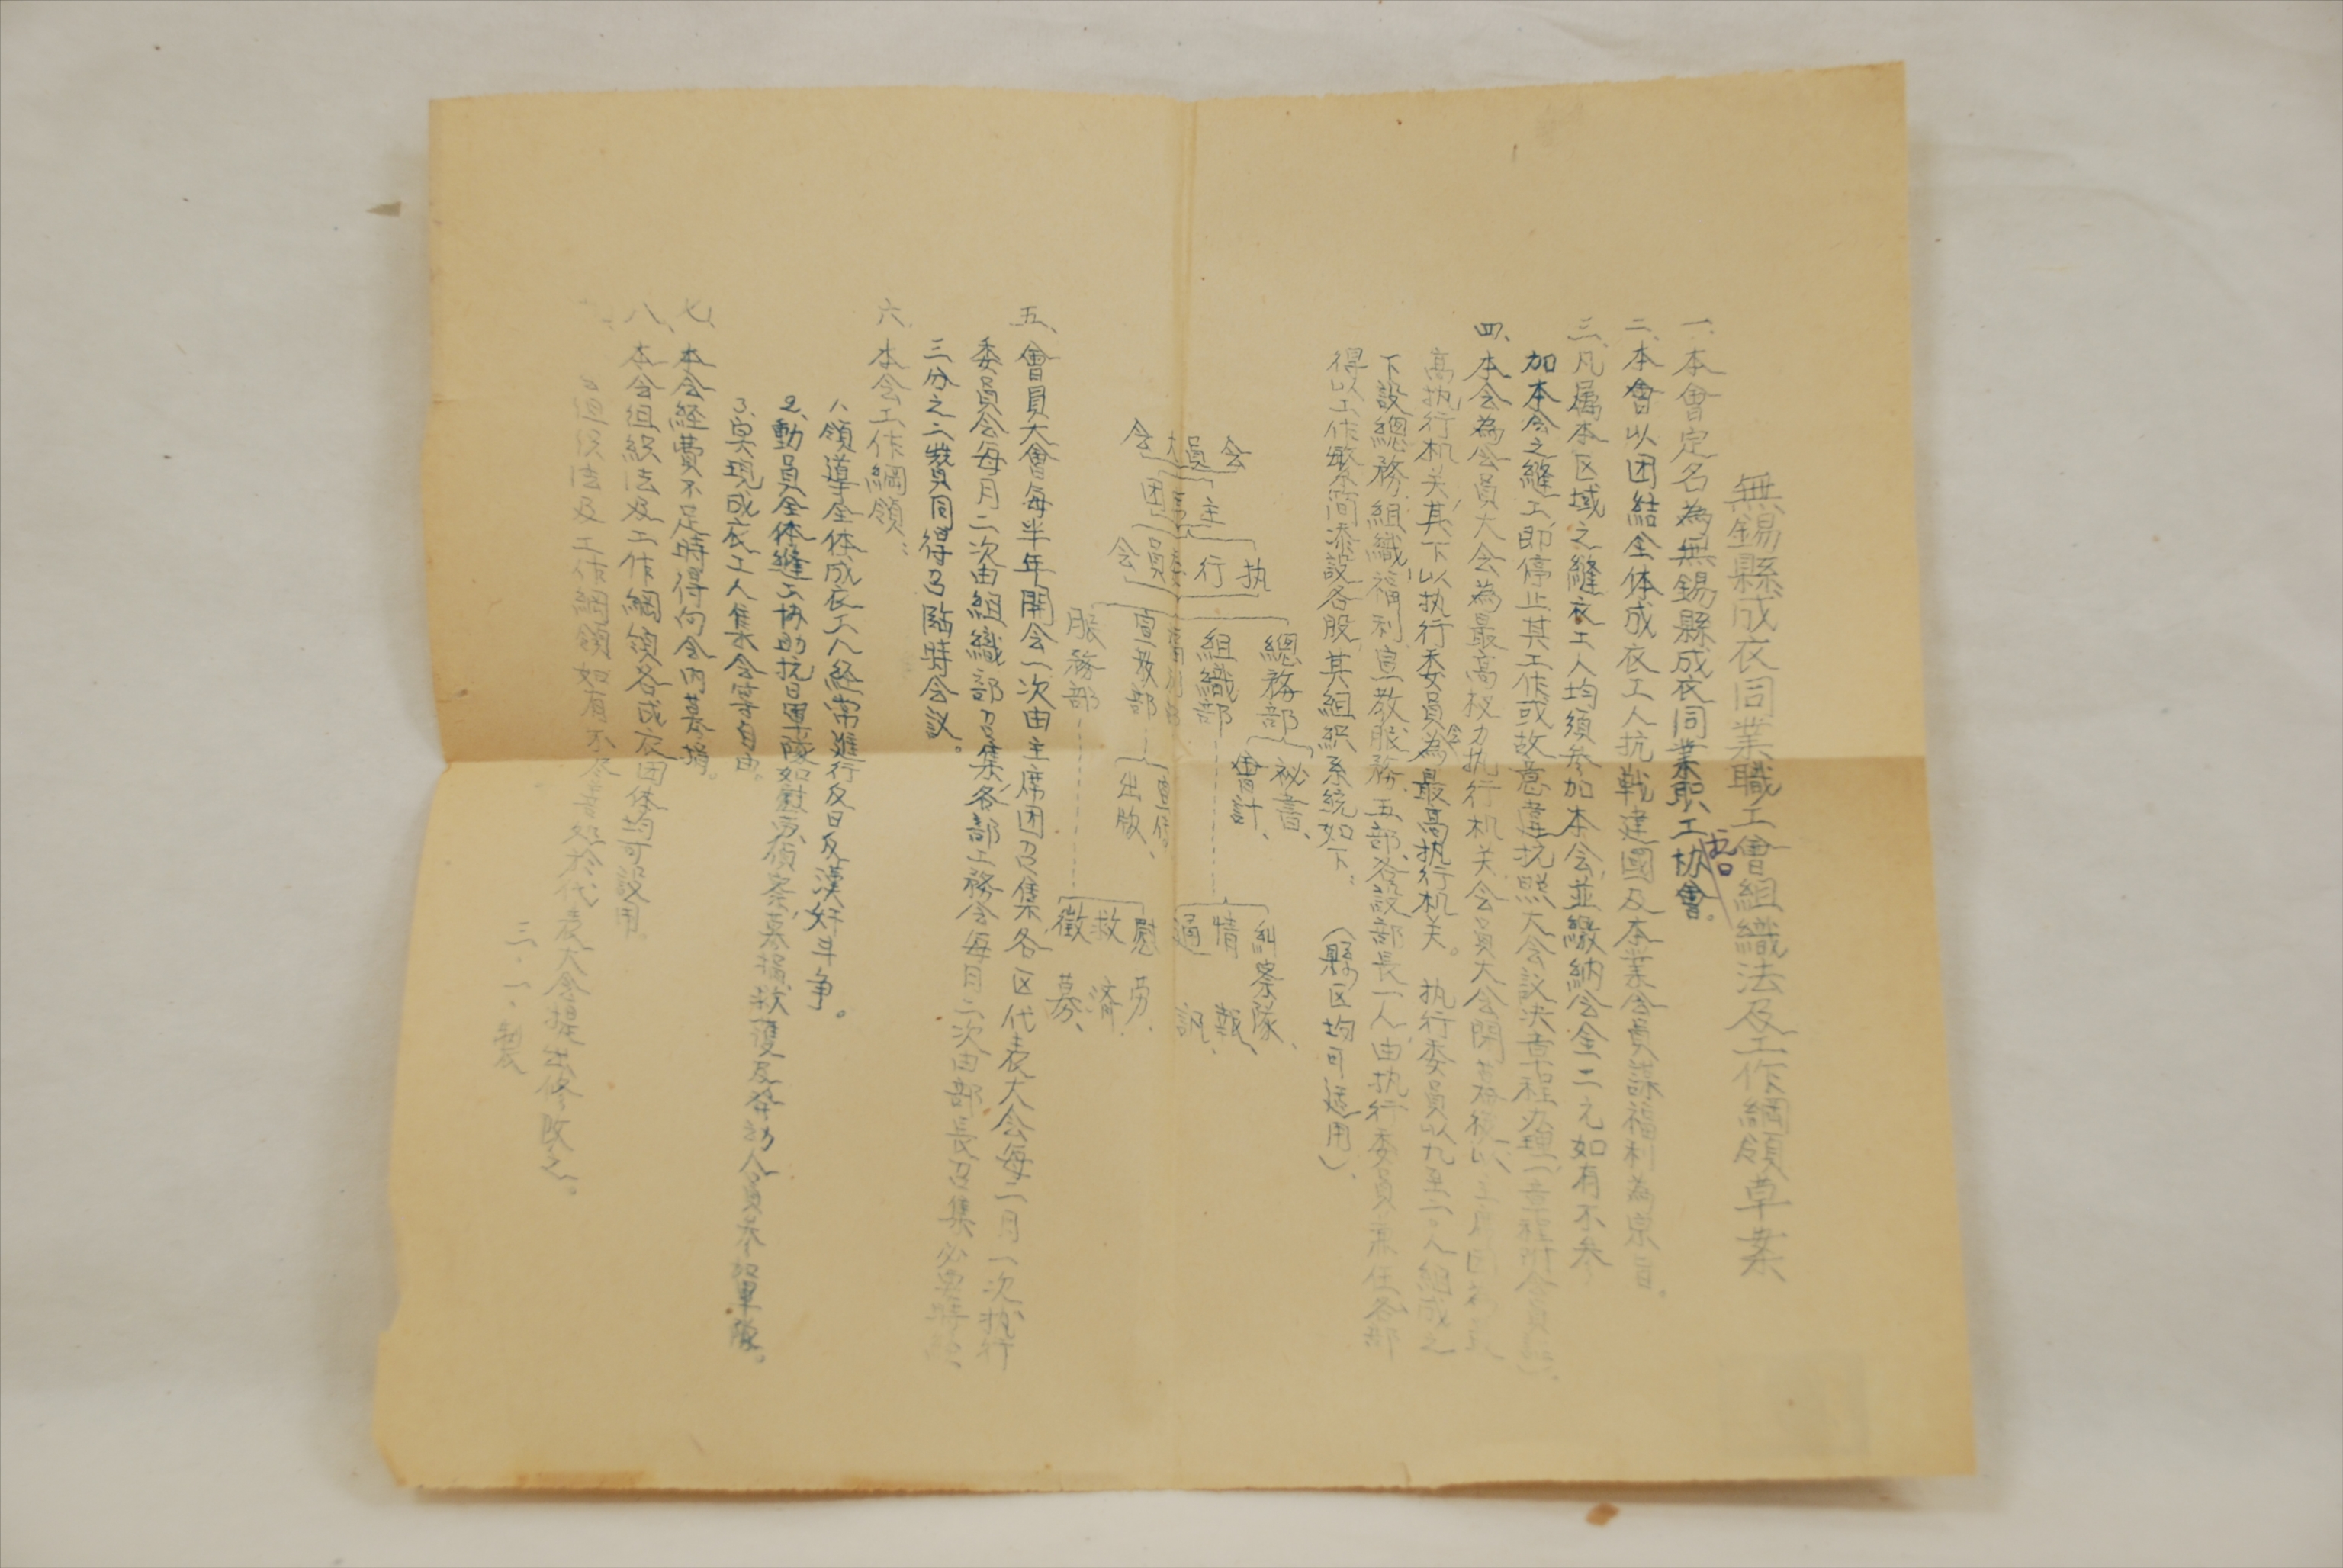 無錫縣成衣同業職工會組織法及工作綱領草案
一、本會定名為無錫縣成衣同業职工协會。
二、本會以团結全体成衣工人抗戰建國及本業会員謀福利為宗旨。
三、凡属本区域之縫衣工人均須参加本会並繳納会金二元如有不参
加本会之縫工,即停止其工作或故意違抗照大会議决章程办理(章程附会員
四、本会為会員大会為最高权力执行机关会員大会閉幕後以主席团為最
高执行机关其下以执行委員会為最高执行机关。执行委員以九至二人組成之
下設總務組織福利宣教服務五部各設部長一人由执行委員兼任各部
得以工作繁简添設各股其組織系統如下: (縣区均可适用)、
会員大会
主席团
执行委員会
總務部 秘書、會計、
組織部 糾察隊、情報、通訊、
福利部
宣教部 宣传。出版、
服務部 慰劳、救濟、徵募、
五、會員大會每半年開会一次由主席团召集各区代表大会每二月一次执行
委員会每月二次由組織部召集,各部工務会每月二次由部長召集必要時
三分之二裝員同得召臨時会議。
六、本会工作綱領:
1、領導全体成衣工人經常進行反日反漢奸斗争。
2、動員全体縫工协助抗日軍隊如慰劳偵察募捐救護及發動人員参加軍隊。
3、实現成衣工人集会等自由。
七、本会経費不足時得向会内募捐。
八、本会組织法及工作綱領各成衣团体均可設用。
組织法及工作綱領如有不尽善处於代表大会提出修改之。
三、一、製